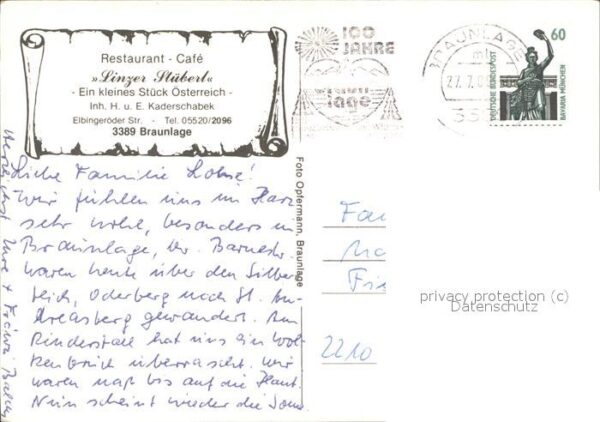 Restaurant - Café
»Linzer Stüberl«
- Ein kleines Stück Österreich -
Inh. H. u. E. Kaderschabek
Elbingeröder Str. - Tel. 05520/2096
3389 Braunlage
100
JAHRE
BRAUNLAGE
mb
27.7.
60
DEUTSCHE BUNDESPOST
BAVARIA MÜNCHEN
Liebe Familie
Wir fühlen uns im Harz
sehr wohl, besonders in
Braunlage, Hr.
waren heute über den Silber
teich, Oderberg nach St. An-
dreasberg gewandert. Am
Rinderstall hat uns ein Wol-
kenbruch überrascht. Wir
waren naß bis auf die Haut.
Nun scheint wieder die Sonne
Herzlichst Ihre
Foto Opfermann, Braunlage
Fa
Fri
2210
privacy protection (c)
Datenschutz